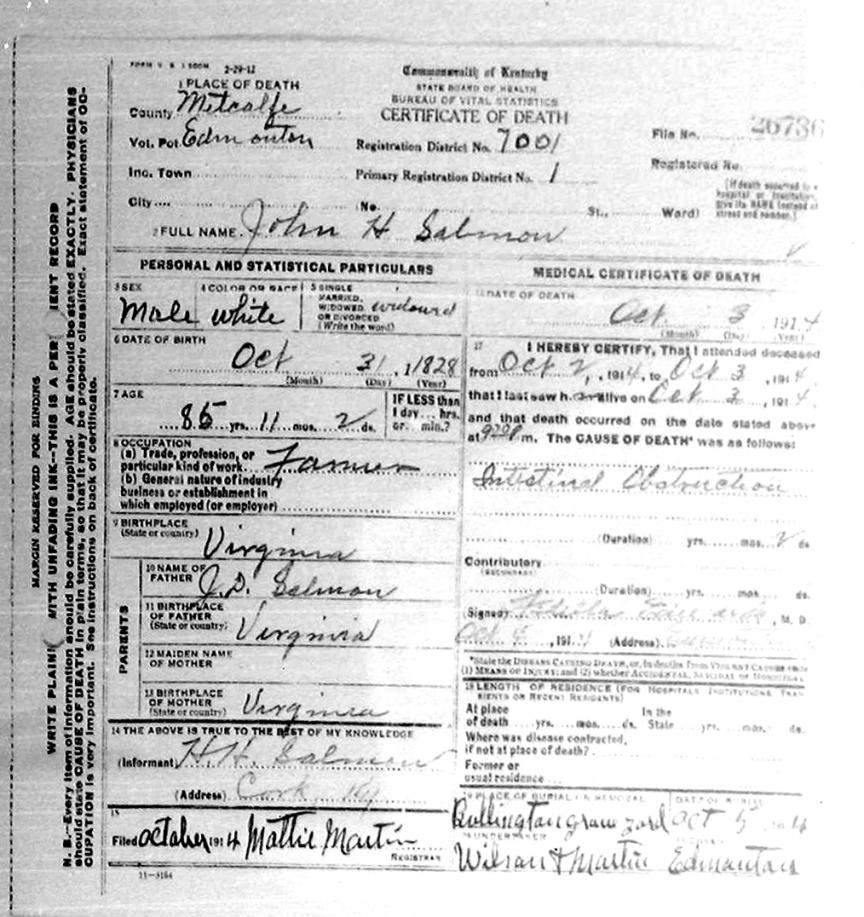 FORM V. S. 1 500M 2-29-12
Commonwealth of Kentucky
STATE BOARD OF HEALTH
BUREAU OF VITAL STATISTICS
CERTIFICATE OF DEATH
1 PLACE OF DEATH
County Metcalfe
Vot. Pct. Edmonton
Inc. Town
City No. St., Ward)
Registration District No. 7001
Primary Registration District No. 1
File No. 26736
Registered No.
[If death occurred in a
hospital or institution,
give its NAME instead of
street and number.]
2 FULL NAME John H Salmon
PERSONAL AND STATISTICAL PARTICULARS
3 SEX Male
4 COLOR OR RACE white
5 SINGLE
MARRIED,
WIDOWED
OR DIVORCED
(Write the word) widowed
6 DATE OF BIRTH
Oct 31, 1828
(Month) (Day) (Year)
7 AGE
85 yrs. 11 mos. 2 ds.
IF LESS than
1 day... hrs.
or... min.?
8 OCCUPATION
(a) Trade, profession, or
particular kind of work Farmer
(b) General nature of industry
business or establishment in
which employed (or employer)
9 BIRTHPLACE
(State or country) Virginia
PARENTS
10 NAME OF
FATHER J.D. Salmon
11 BIRTHPLACE
OF FATHER
(State or country) Virginia
12 MAIDEN NAME
OF MOTHER
13 BIRTHPLACE
OF MOTHER
(State or country) Virginia
14 THE ABOVE IS TRUE TO THE BEST OF MY KNOWLEDGE
(Informant) H.H. Salmon
(Address) Cork Ky
15
Filed October 1914 Mattie Martin
REGISTRAR
11-3184
MEDICAL CERTIFICATE OF DEATH
16 DATE OF DEATH
Oct 3 1914
(Month) (Day) (Year)
17 I HEREBY CERTIFY, That I attended deceased
from Oct 2, 1914, to Oct 3, 1914
that I last saw h alive on Oct 3, 1914
and that death occurred on the date stated above
at m. The CAUSE OF DEATH* was as follows:
Intestinal Obstruction
(Duration) yrs. mos. 2 ds.
Contributory
(SECONDARY)
(Duration) yrs. mos. ds.
(Signed) M. D.
Oct 4, 1914 (Address)
*State the DISEASE CAUSING DEATH, or, in deaths from VIOLENT CAUSES state
(1) MEANS OF INJURY; and (2) whether ACCIDENTAL, SUICIDAL or HOMICIDAL
18 LENGTH OF RESIDENCE (FOR HOSPITALS INSTITUTIONS TRAN
SIENTS OR RECENT RESIDENTS)
At place In the
of death yrs. mos. ds. State yrs. mos. ds.
Where was disease contracted,
if not at place of death?
Former or
usual residence
19 PLACE OF BURIAL OR REMOVAL DATE OF BURIAL
Bullington grave yard Oct 5 1914
UNDERTAKER
Wilson & Martin Edmonton
MARGIN RESERVED FOR BINDING
WRITE PLAIN WITH UNFADING INK—THIS IS A PER IENT RECORD
N. B.—Every item of information should be carefully supplied. AGE should be stated EXACTLY. PHYSICIANS
should state CAUSE OF DEATH in plain terms, so that it may be properly classified. Exact statement of OC-
CUPATION is very important. See instructions on back of certificate.